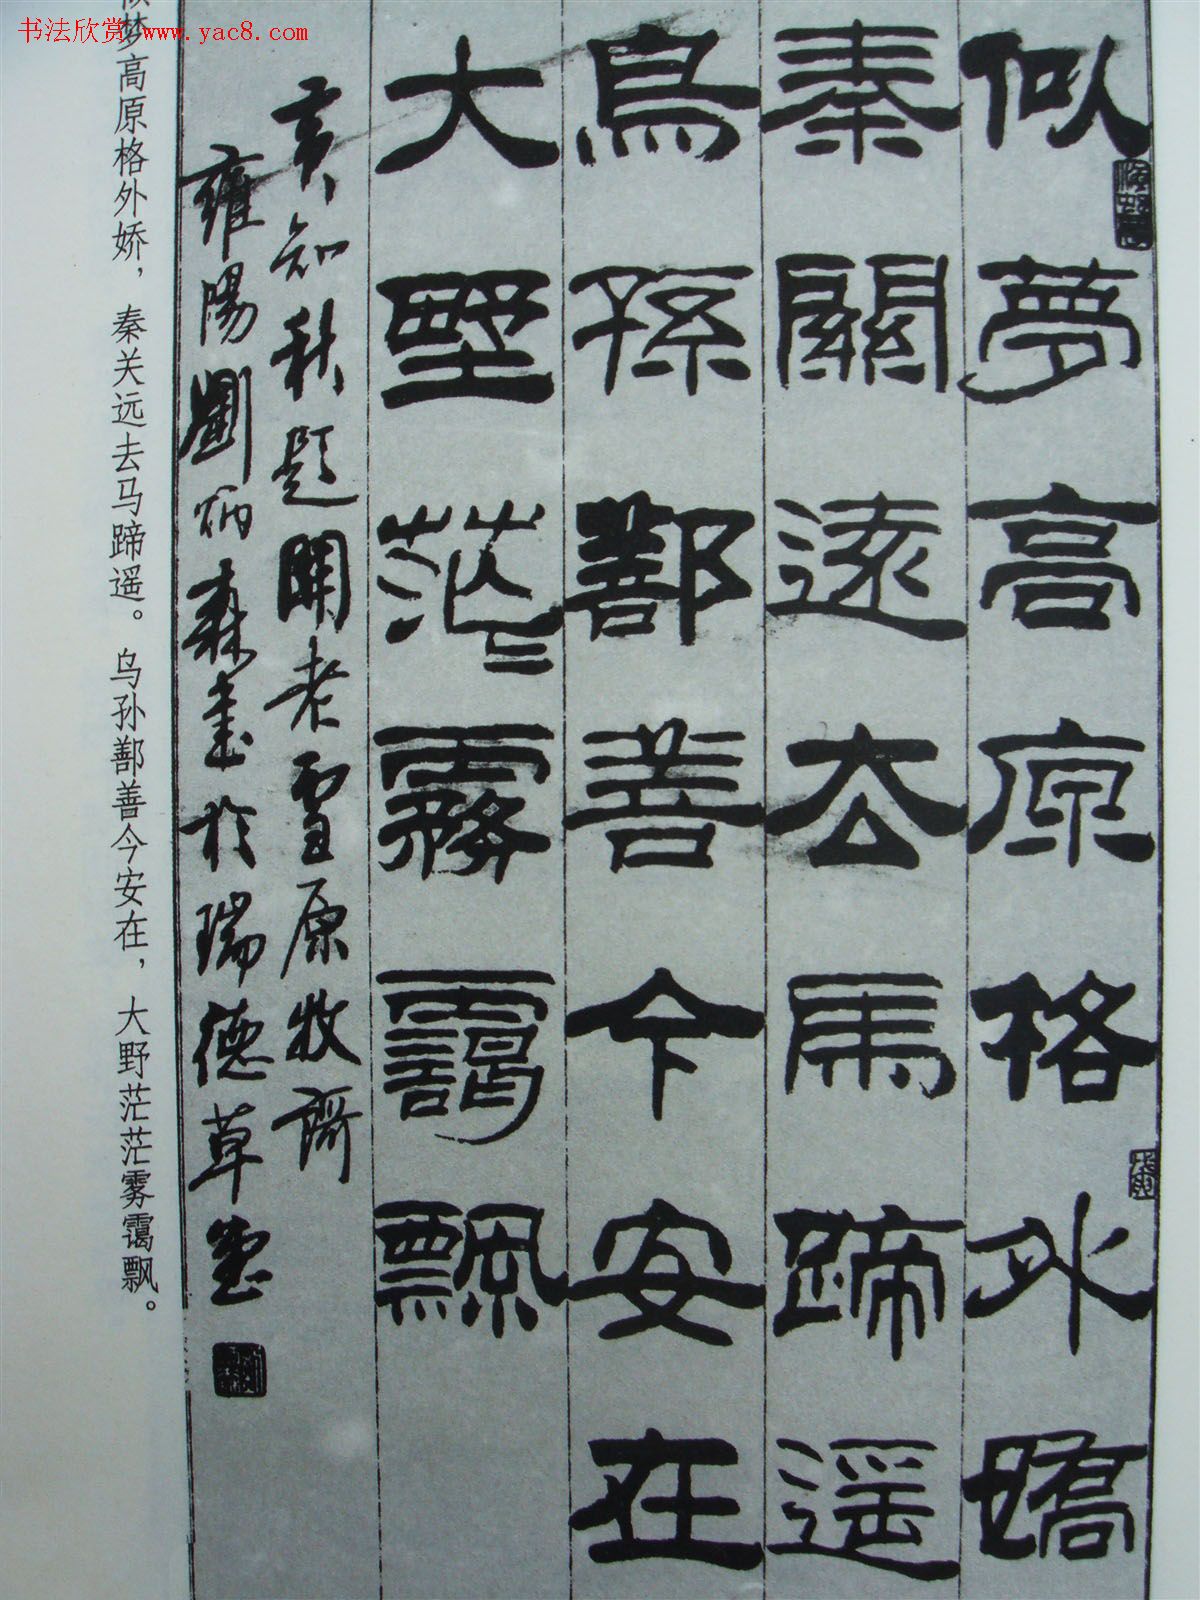 书法欣赏 www.yac8.com
似夢高原格外嬌
秦關遠去馬蹄遥
烏孫鄯善今安在
大野茫茫霧靄飄
黄知秋題關老雪原牧齋
雍陽劉炳森書於瑞德草堂
似梦高原格外娇，秦关远去马蹄遥。乌孙鄯善今安在，大野茫茫雾霭飘。